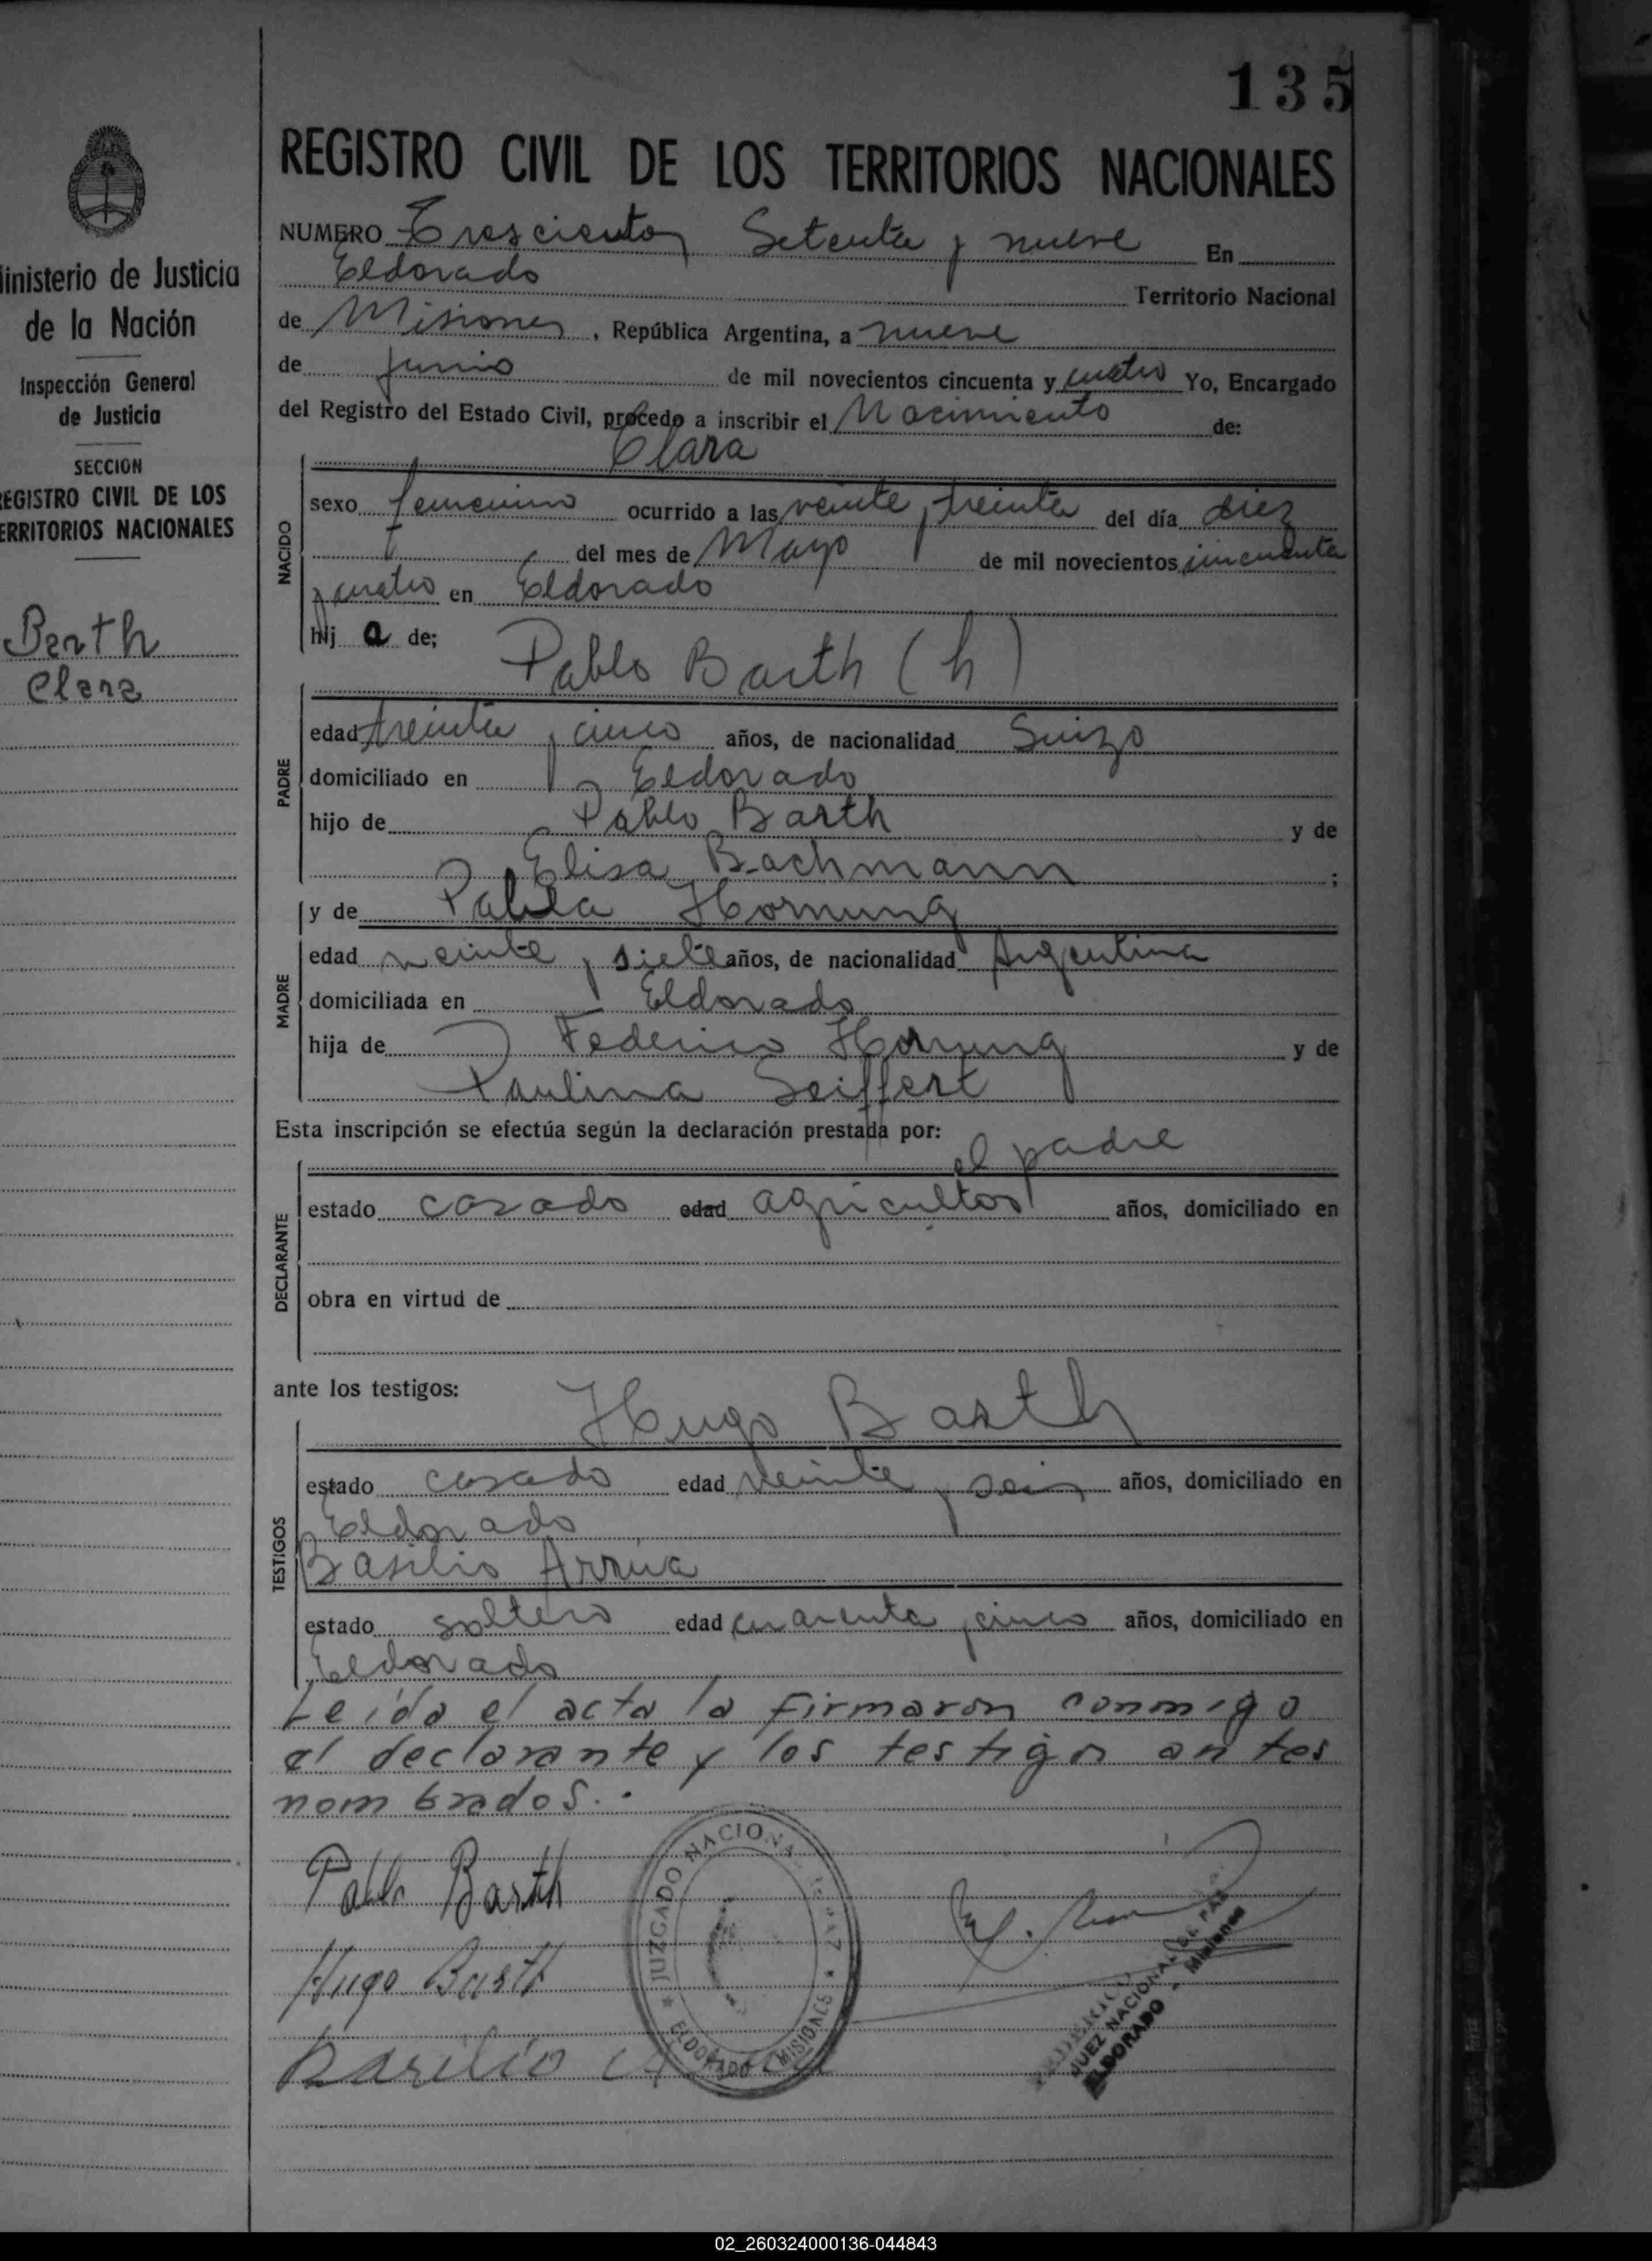 135
REGISTRO CIVIL DE LOS TERRITORIOS NACIONALES
NUMERO Trescientos Setenta y nueve En
Eldorado
Territorio Nacional
de Misiones, República Argentina, a nueve
de junio de mil novecientos cincuenta y cuatro Yo, Encargado
del Registro del Estado Civil, procedo a inscribir el Nacimiento de:
Clara
NACIDO
sexo femenino ocurrido a las veinte y treinta del día diez
del mes de Mayo de mil novecientos cincuenta
y cuatro en Eldorado
hij a de;
Pablo Barth (h)
PADRE
edad treinta y cinco años, de nacionalidad Suizo
domiciliado en Eldorado
hijo de Pablo Barth y de
Elisa Bachmann ;
y de Pabla Hornung
MADRE
edad veinte y siete años, de nacionalidad Argentina
domiciliada en Eldorado
hija de Federico Hornung y de
Paulina Seiffert
Esta inscripción se efectúa según la declaración prestada por:
el padre
DECLARANTE
estado casado edad agricultor años, domiciliado en
obra en virtud de
ante los testigos:
Hugo Barth
TESTIGOS
estado casado edad veinte y seis años, domiciliado en
Eldorado
Basilio Arrua
estado soltero edad cuarenta y cinco años, domiciliado en
Eldorado
Leída el acta la firmaron conmigo
el declarante y los testigos antes
nombrados.
Pablo Barth
Hugo Barth
Basilio
JUZGADO NACIONAL
ELDORADO MISIONES
JUEZ NACIONAL DE PAZ
ELDORADO - Misiones
inisterio de Justicia
de la Nación
Inspección General
de Justicia
SECCION
REGISTRO CIVIL DE LOS
ERRITORIOS NACIONALES
Barth
Clara
02_260324000136-044843